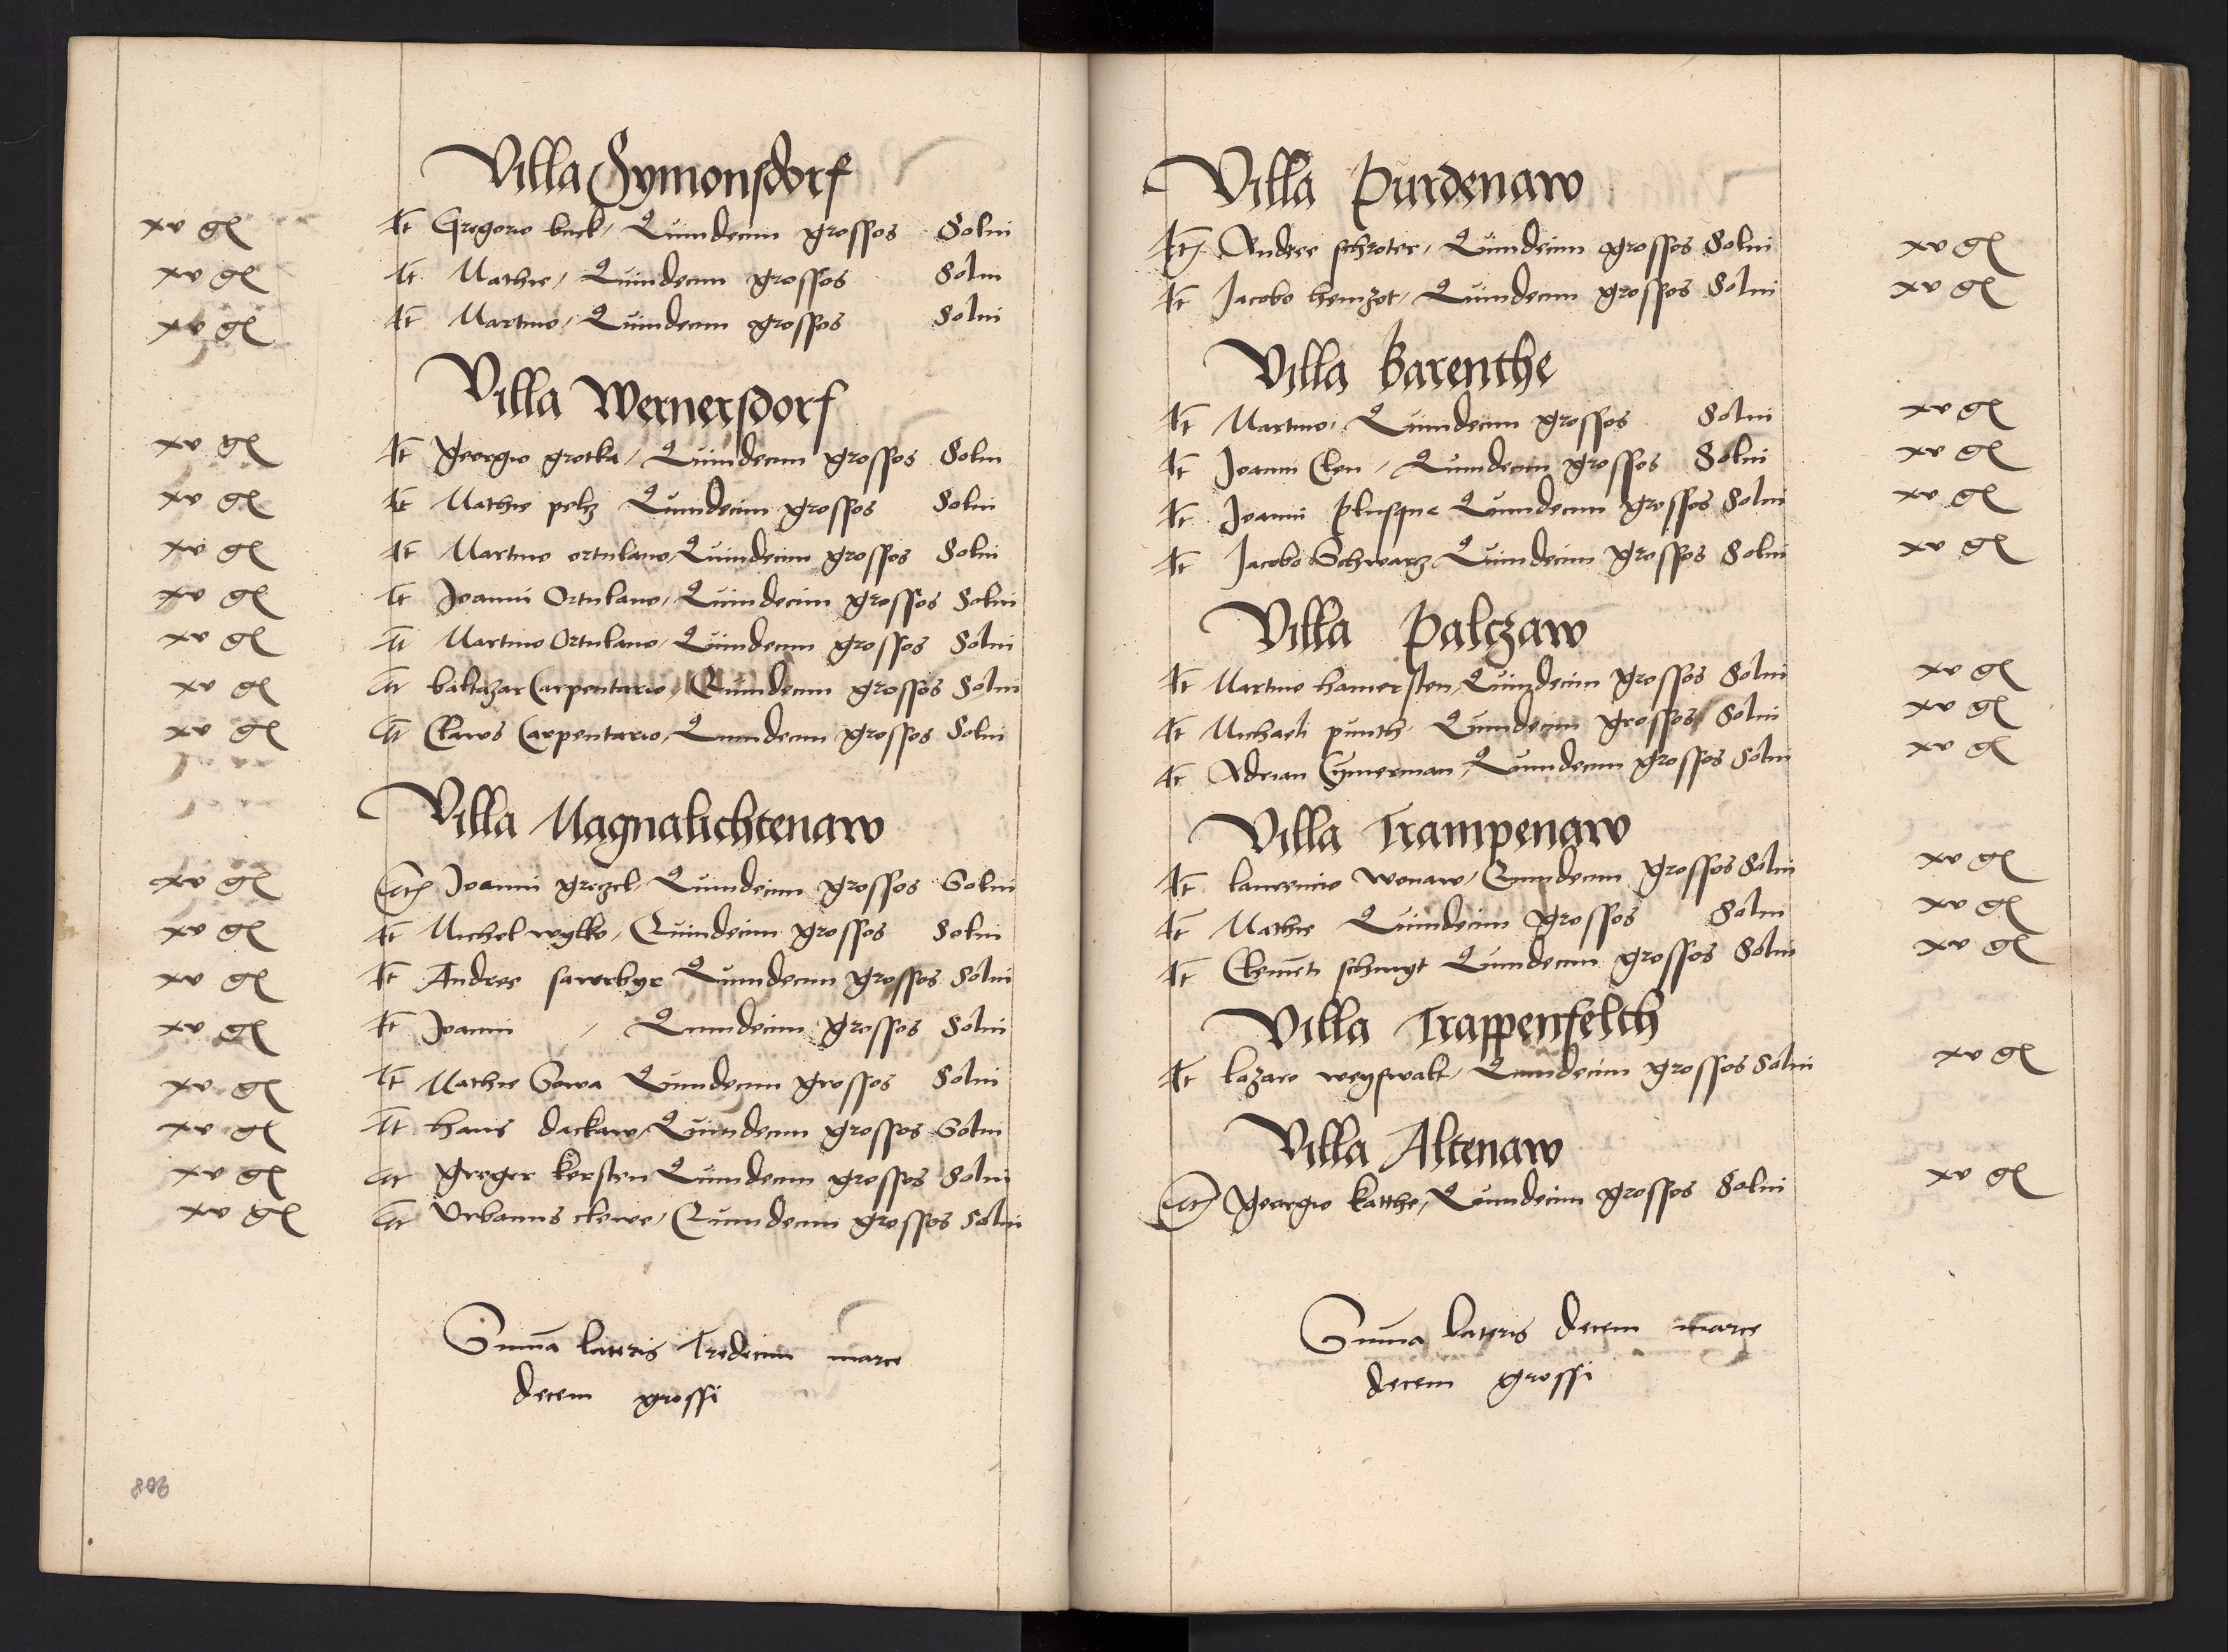 Villa Symonsdorf
xv gl It Gregorio buck / Quindecim grossos Solui
xv gl It Mathie / Quindecim grossos Solui
xv gl It Martino / Quindecim grossos Solui
Villa Wernersdorf
xv gl It Georgio grotka / Quindecim grossos Solui
xv gl It Mathie peltz Quindecim grossos Solui
xv gl It Martino ortulano / Quindecim grossos Solui
xv gl It Joanni Ortulano / Quindecim grossos Solui
xv gl It Martino Ortulano / Quindecim grossos Solui
xv gl It baltazar Carpentario / Quindecim grossos Solui
xv gl It Claws Carpentario / Quindecim grossos Solui
Villa Magnalichtenaw
xv gl Itm Joanni grezel / Quindecim grossos Solui
xv gl It Michel wylko / Quindecim grossos Solui
xv gl It Andree sawrbyr Quindecim grossos Solui
xv gl It Joanni / Quindecim grossos Solui
xv gl It Mathie Sowa Quindecim grossos Solui
xv gl It hans dackaw / Quindecim grossos Solui
xv gl It Greger kersten Quindecim grossos Solui
xv gl It Vrbanus clewe / Quindecim grossos Solui
Suma lateris Tredecim marce
decem grossi
Villa Purdenaw
Itm Andree schroter / Quindecim grossos Solui xv gl
It Jacobo henzot / Quindecim grossos Solui xv gl
Villa Barenthe
It Martino / Quindecim grossos Solui xv gl
It Joanni Clen / Quindecim grossos Solui xv gl
It Joanni Plusque Quindecim grossos Solui xv gl
It Jacobo Schwartz Quindecim grossos Solui xv gl
Villa Palczaw
It Martino hamersten / Quindecim grossos Solui xv gl
It Michaeli punth / Quindecim grossos Solui xv gl
It Adrian Cymerman / Quindecim grossos Solui xv gl
Villa Trampenaw
It laurencio wonaw / Quindecim grossos Solui xv gl
It Mathie Quindecim grossos Solui xv gl
It Clemeti schmyt Quindecim grossos Solui xv gl
Villa Trappenfelth
It lazaro weyswalt / Quindecim grossos Solui xv gl
Villa Altenaw
Itm Georgio katthe / Quindecim grossos Solui xv gl
Suma lateris decem marce
decem grossi